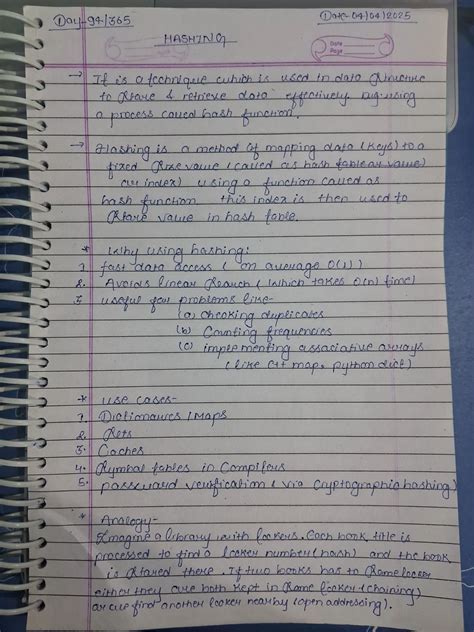 Day-94/365
Date-04/04/2025
HASHING
Date
Page
→ It is a technique which is used in data structure
to store & retrieve data effectively by using
a process called hash function.
→ Hashing is a method of mapping data (keys) to a
fixed size value (called as hash table value)
(or index) using a function called as
hash function this index is then used to
store value in hash table.
* Why using hashing:
1. fast data access ( on average O(1))
2. Avoids linear search ( which takes O(n) time)
3. useful for problems like-
(a) checking duplicates
(b) Counting frequencies
(c) implementing associative arrays
(like C++ map, python dict)
* use cases-
1. Dictionaries / Maps
2. Sets
3. Caches
4. Symbol tables in Compilers
5. password verification ( via Cryptographic hashing)
* Analogy-
Imagine a library with lockers. Each book title is
processed to find a locker number (hash) and the book
is stored there. If two books has to same locker
either they are both kept in same locker (chaining)
or we find another locker nearby (open addressing).